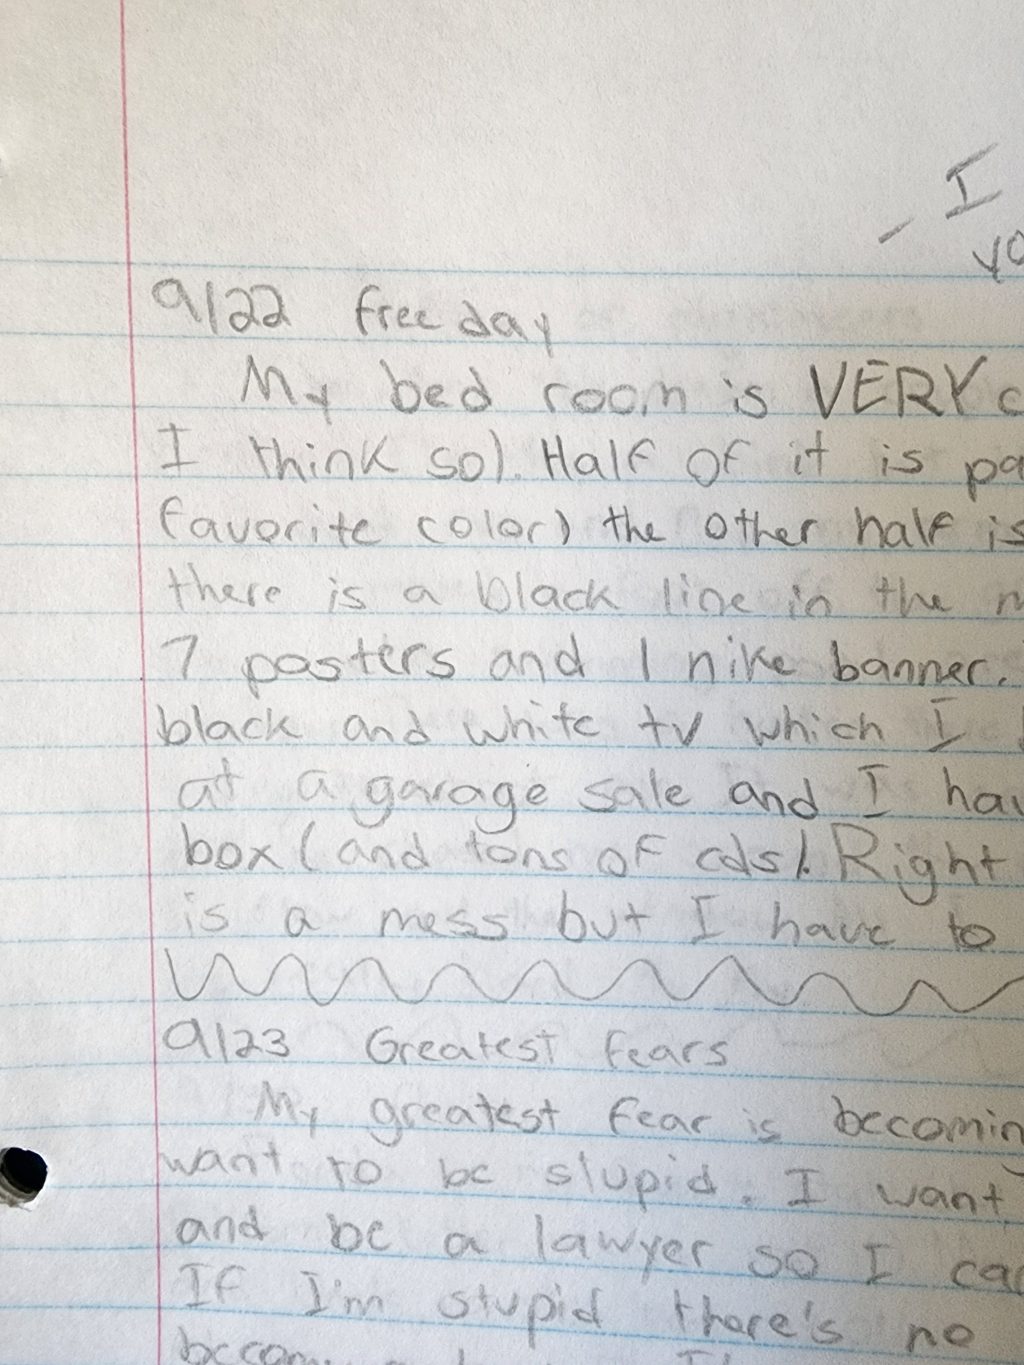 - I
yo
9/22 free day
My bed room is VERY c
I think so). Half of it is pa
favorite color) the other half is
there is a black line in the m
7 posters and 1 nike banner.
black and white tv which I
at a garage sale and I hav
box (and tons of cds). Right
is a mess but I have to
9/23 Greatest fears
My greatest fear is becomin
want to be stupid. I want
and be a lawyer so I ca
If I'm stupid there's no